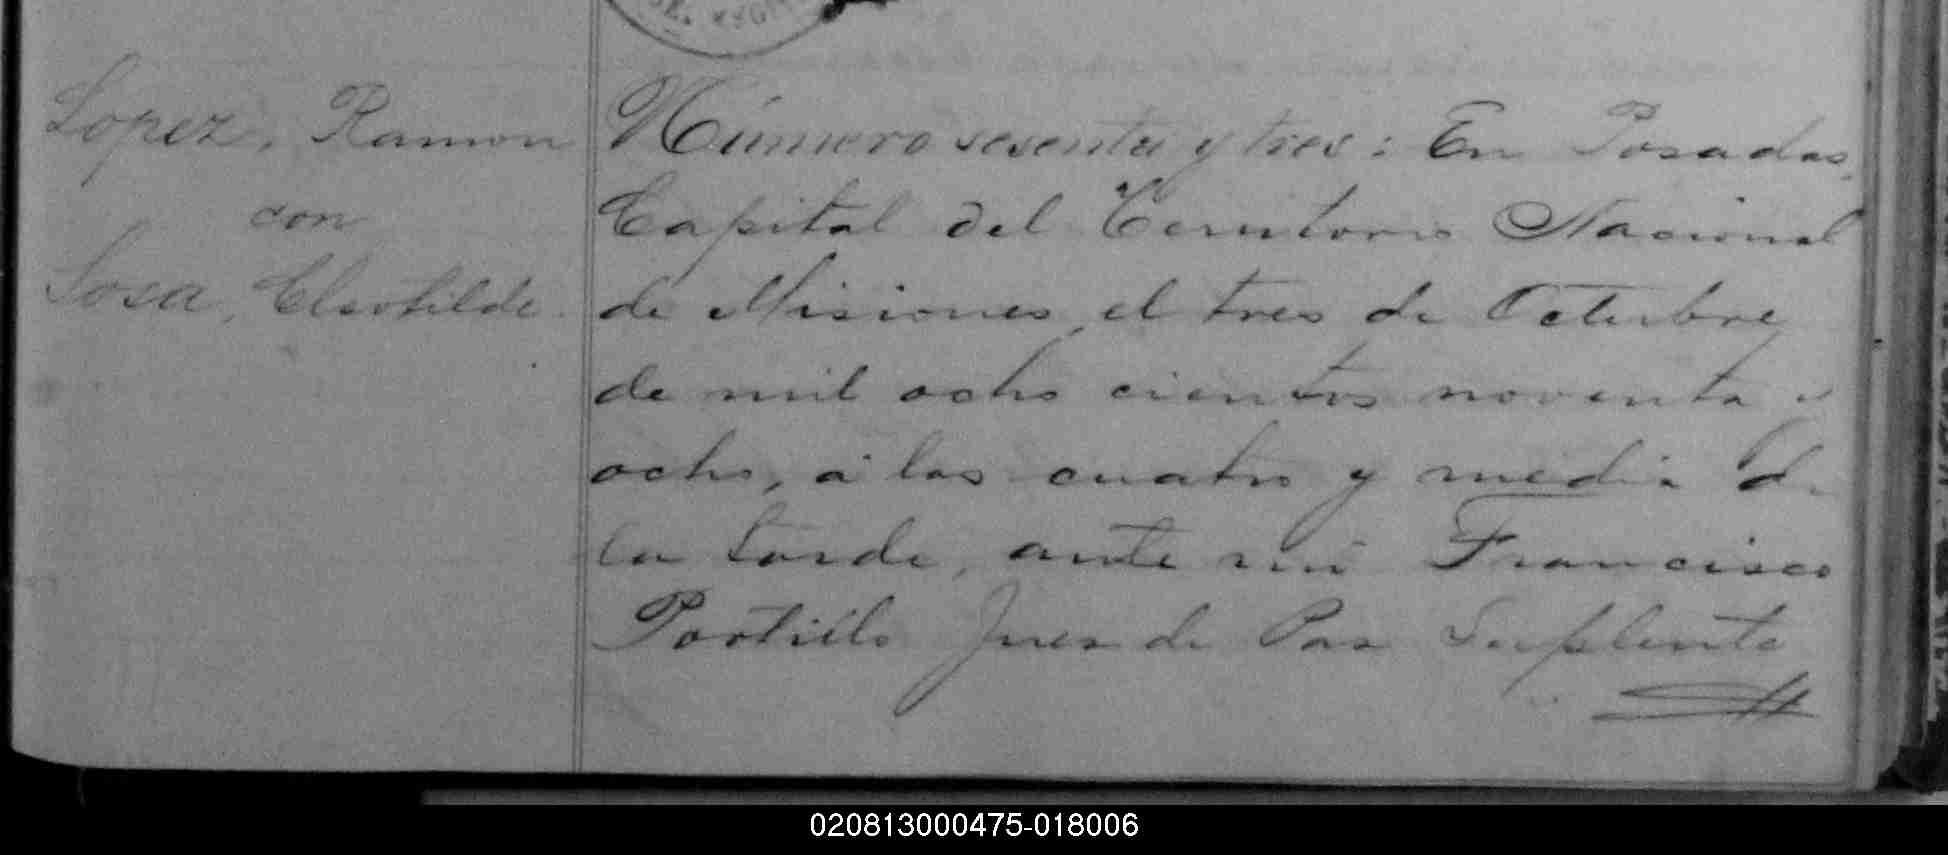 Lopez, Ramon
con
Sosa, Clsotilde.
Número sesenta y tres: En Posadas,
Capital del Territorio Nacional
de Misiones, el tres de Octubre
de mil ocho cientos noventa y
ocho, á las cuatro y media de
la tarde, ante mi Francisco
Portillo Juez de Paz Suplente
020813000475-018006